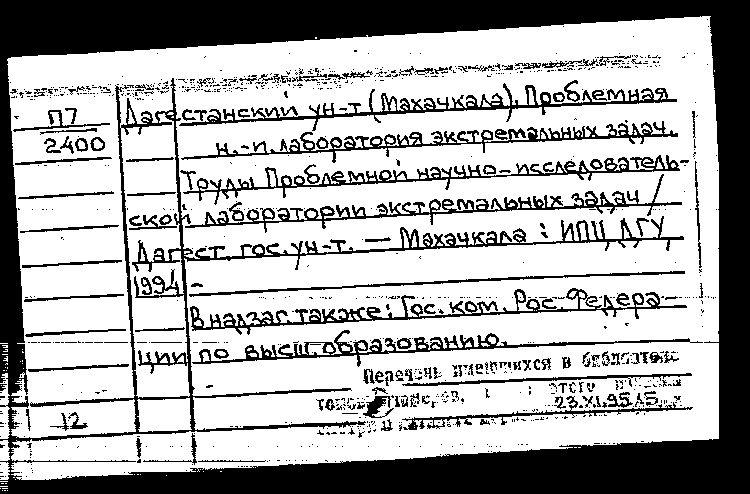 П7
2400
Дагестанский ун-т (Махачкала). Проблемная
н.-и. лаборатория экстремальных задач.
Труды Проблемной научно-исследователь-
ской лаборатории экстремальных задач /
Дагест. гос. ун-т. — Махачкала : ИПЦ ДГУ,
1994 -
В надзаг. также: Гос. ком. Рос. Федера-
ции по высш. образованию.
Перечень имеющихся в библиотеке
томов этого
23.XI.95
12